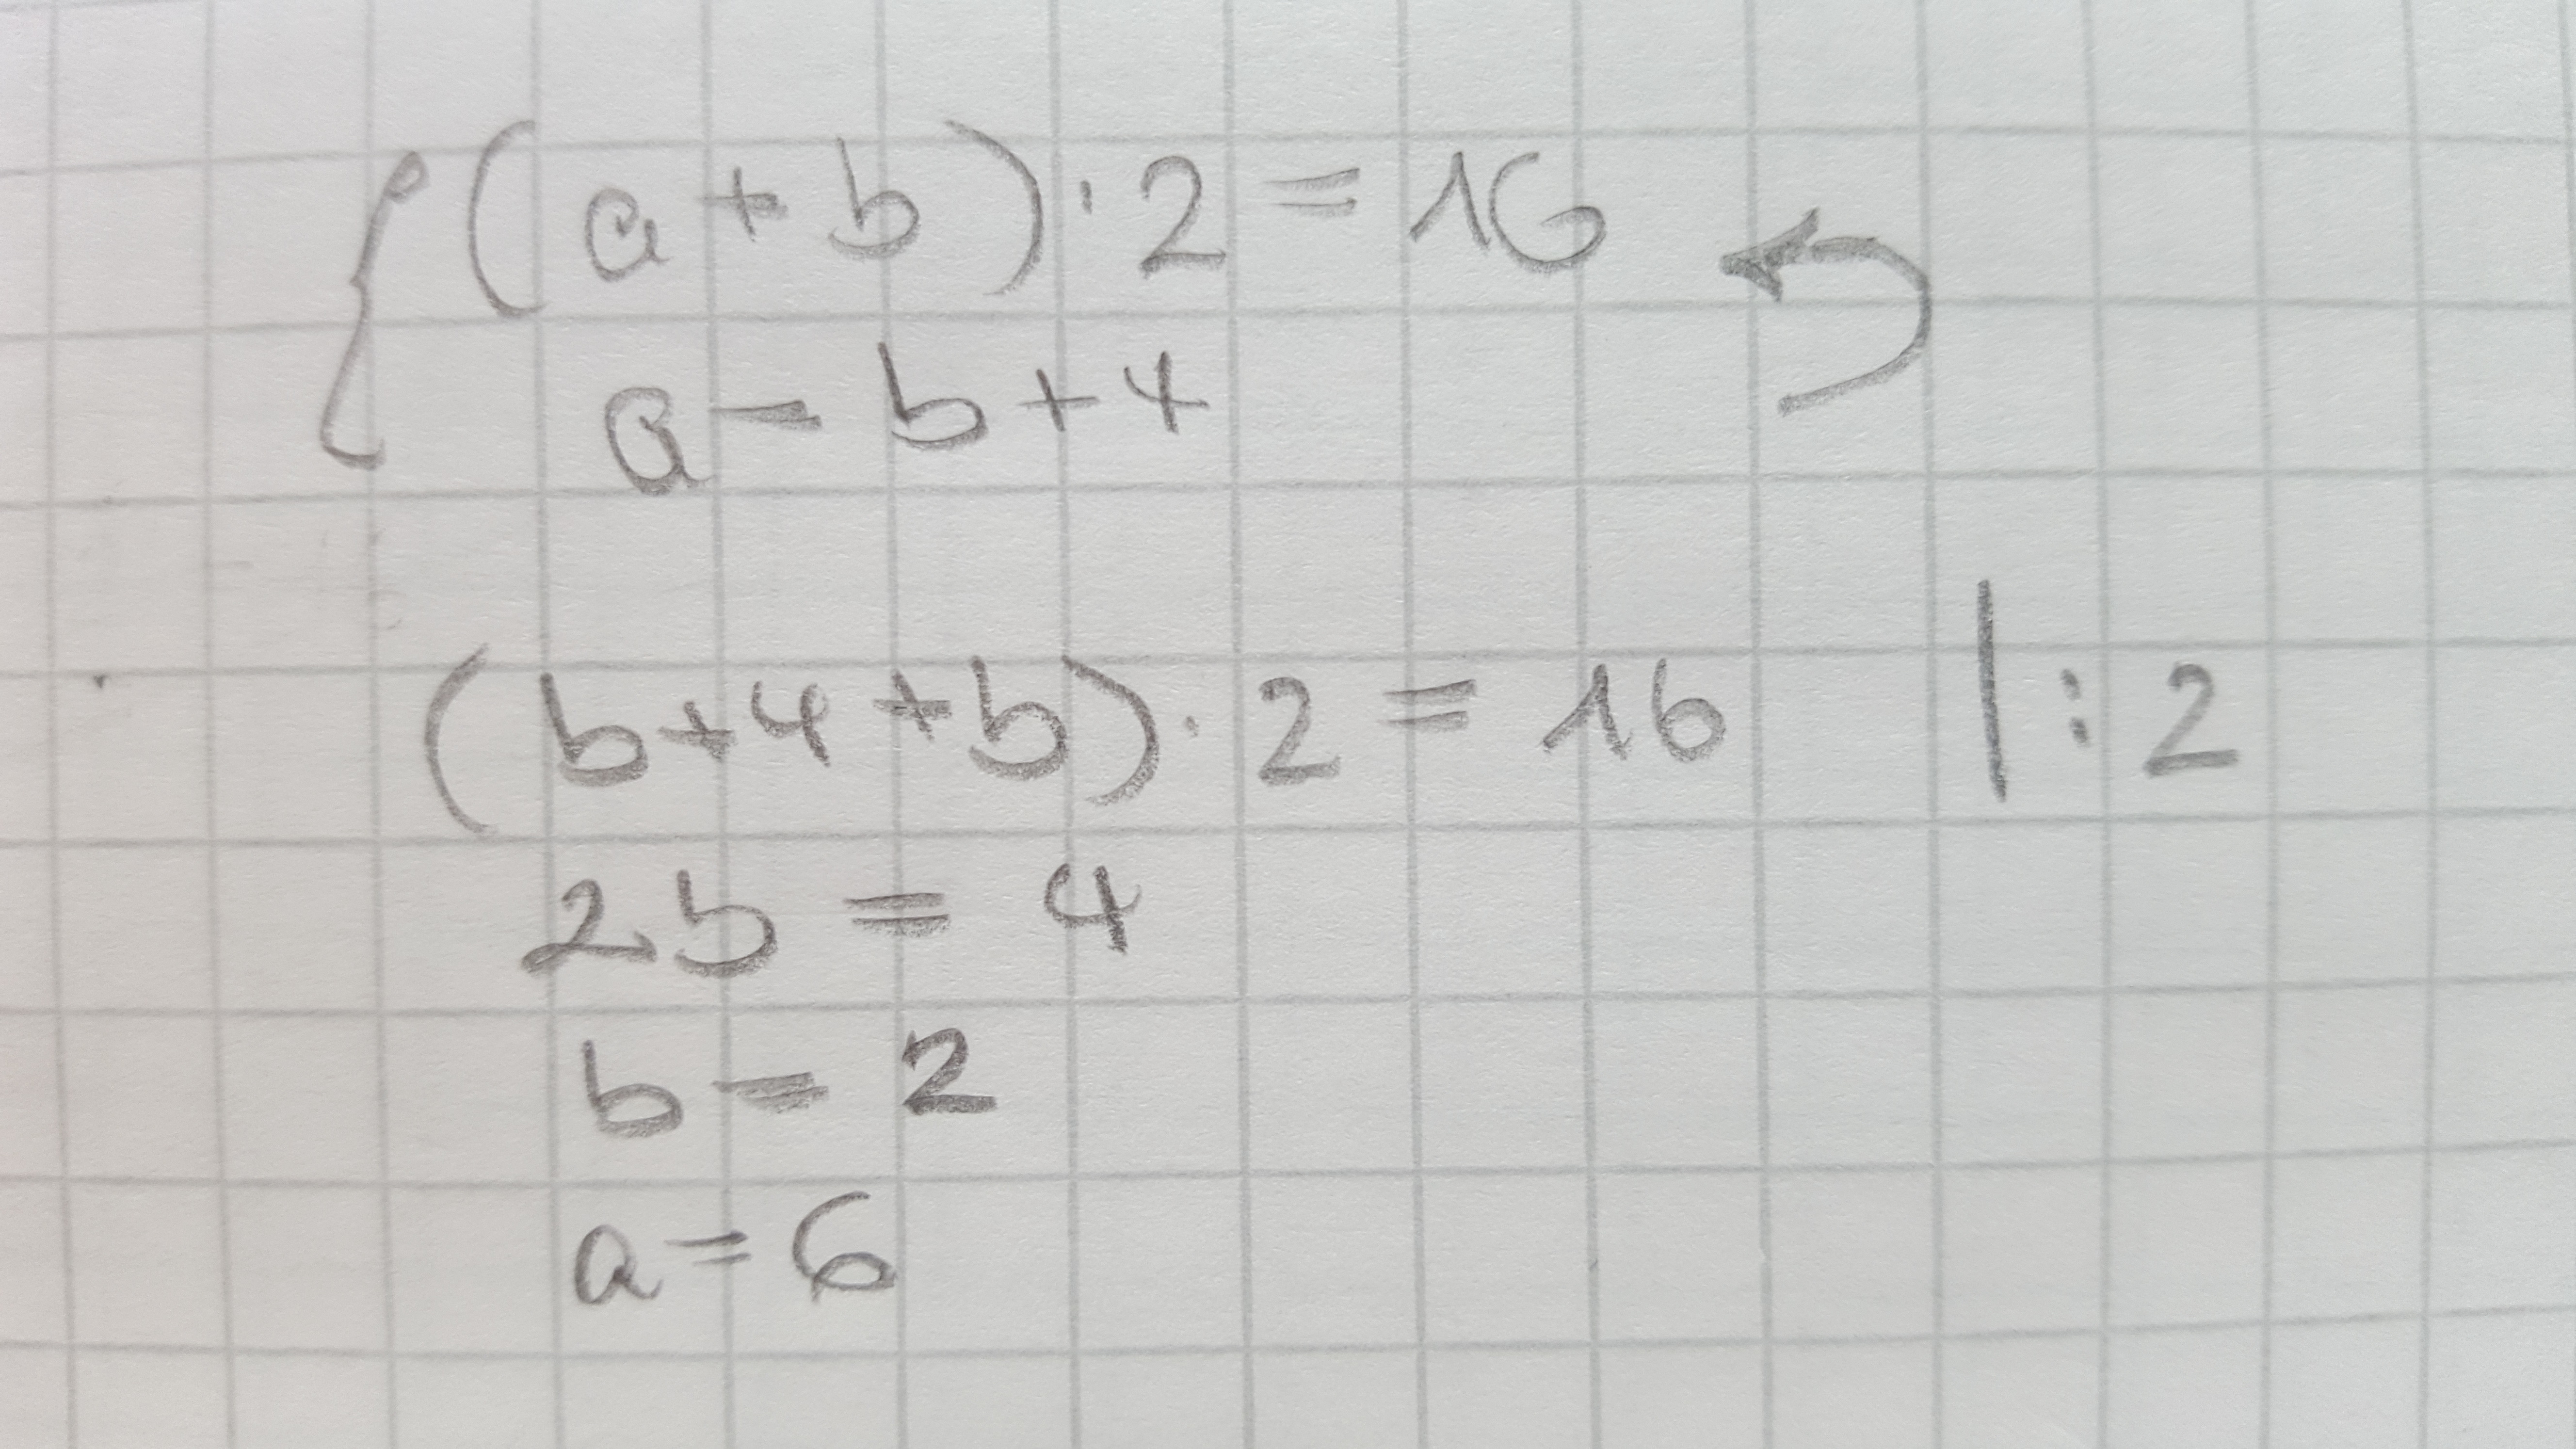 { (a + b) · 2 = 16
a = b + 4
(b + 4 + b) · 2 = 16 | : 2
2b = 4
b = 2
a = 6